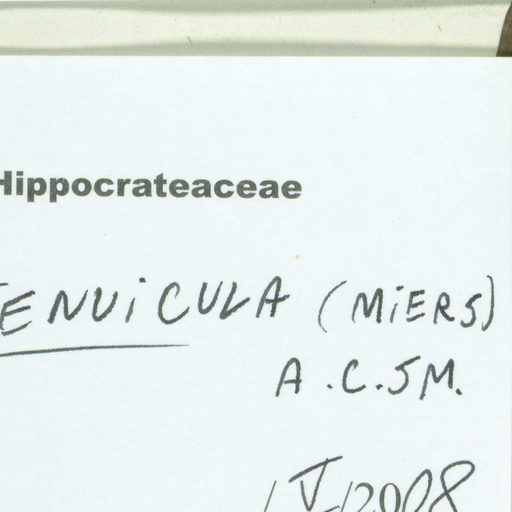 Hippocrateaceae
TENUiCULA (MiERS)
A.C.SM.
/ V /2008